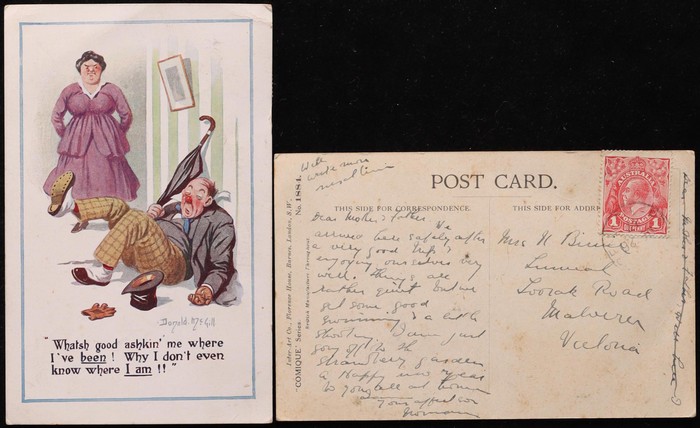 Donald McGill
"Whatsh good ashkin' me where
I've been! Why I don't even
know where I am!!"
Will
write more
next time
POST CARD.
THIS SIDE FOR CORRESPONDENCE.
THIS SIDE FOR ADDR
No. 1884.
Inter-Art Co., Florence House, Barnes, London, S.W.
"COMIQUE" Series
British Manufacture Throughout
Dear Mother & Father. We
arrived here safely after
a very good trip &
enjoying ourselves very
well. Things are
rather quiet but we
get some good
swimming & a little
shooting. I am just
going off to the
strawberry gardens
a Happy new year
to you all at home
Your affect son
Norman
Mrs N
Toorak Road
Malvern
Victoria
AUSTRALIA
1 POSTAGE 1
ONE PENNY